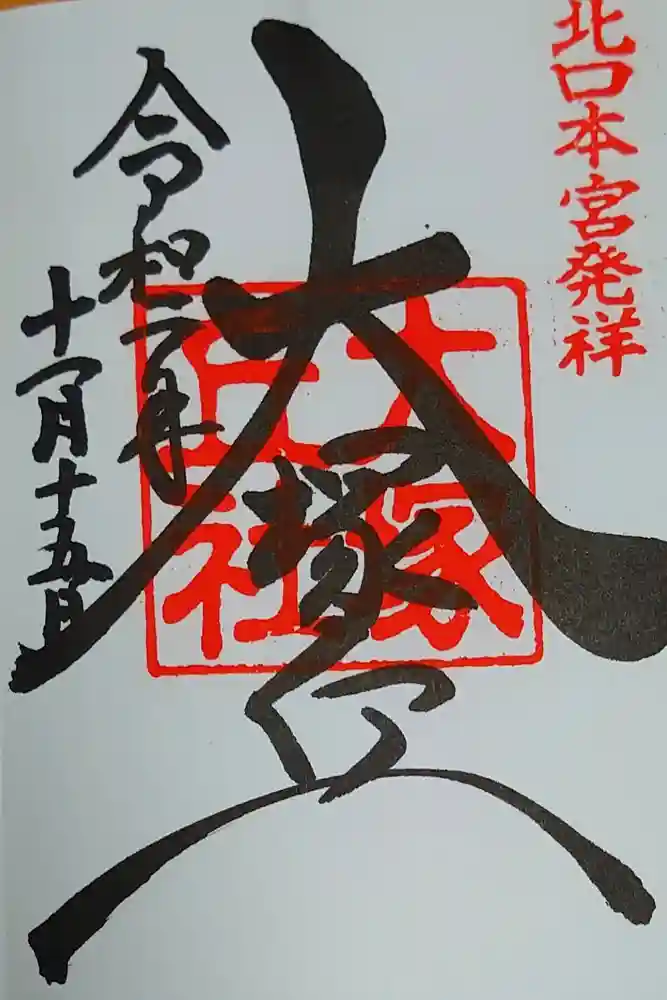 北口本宮発祥
大塚丘
大塚
丘社
令和二年
十一月十五日